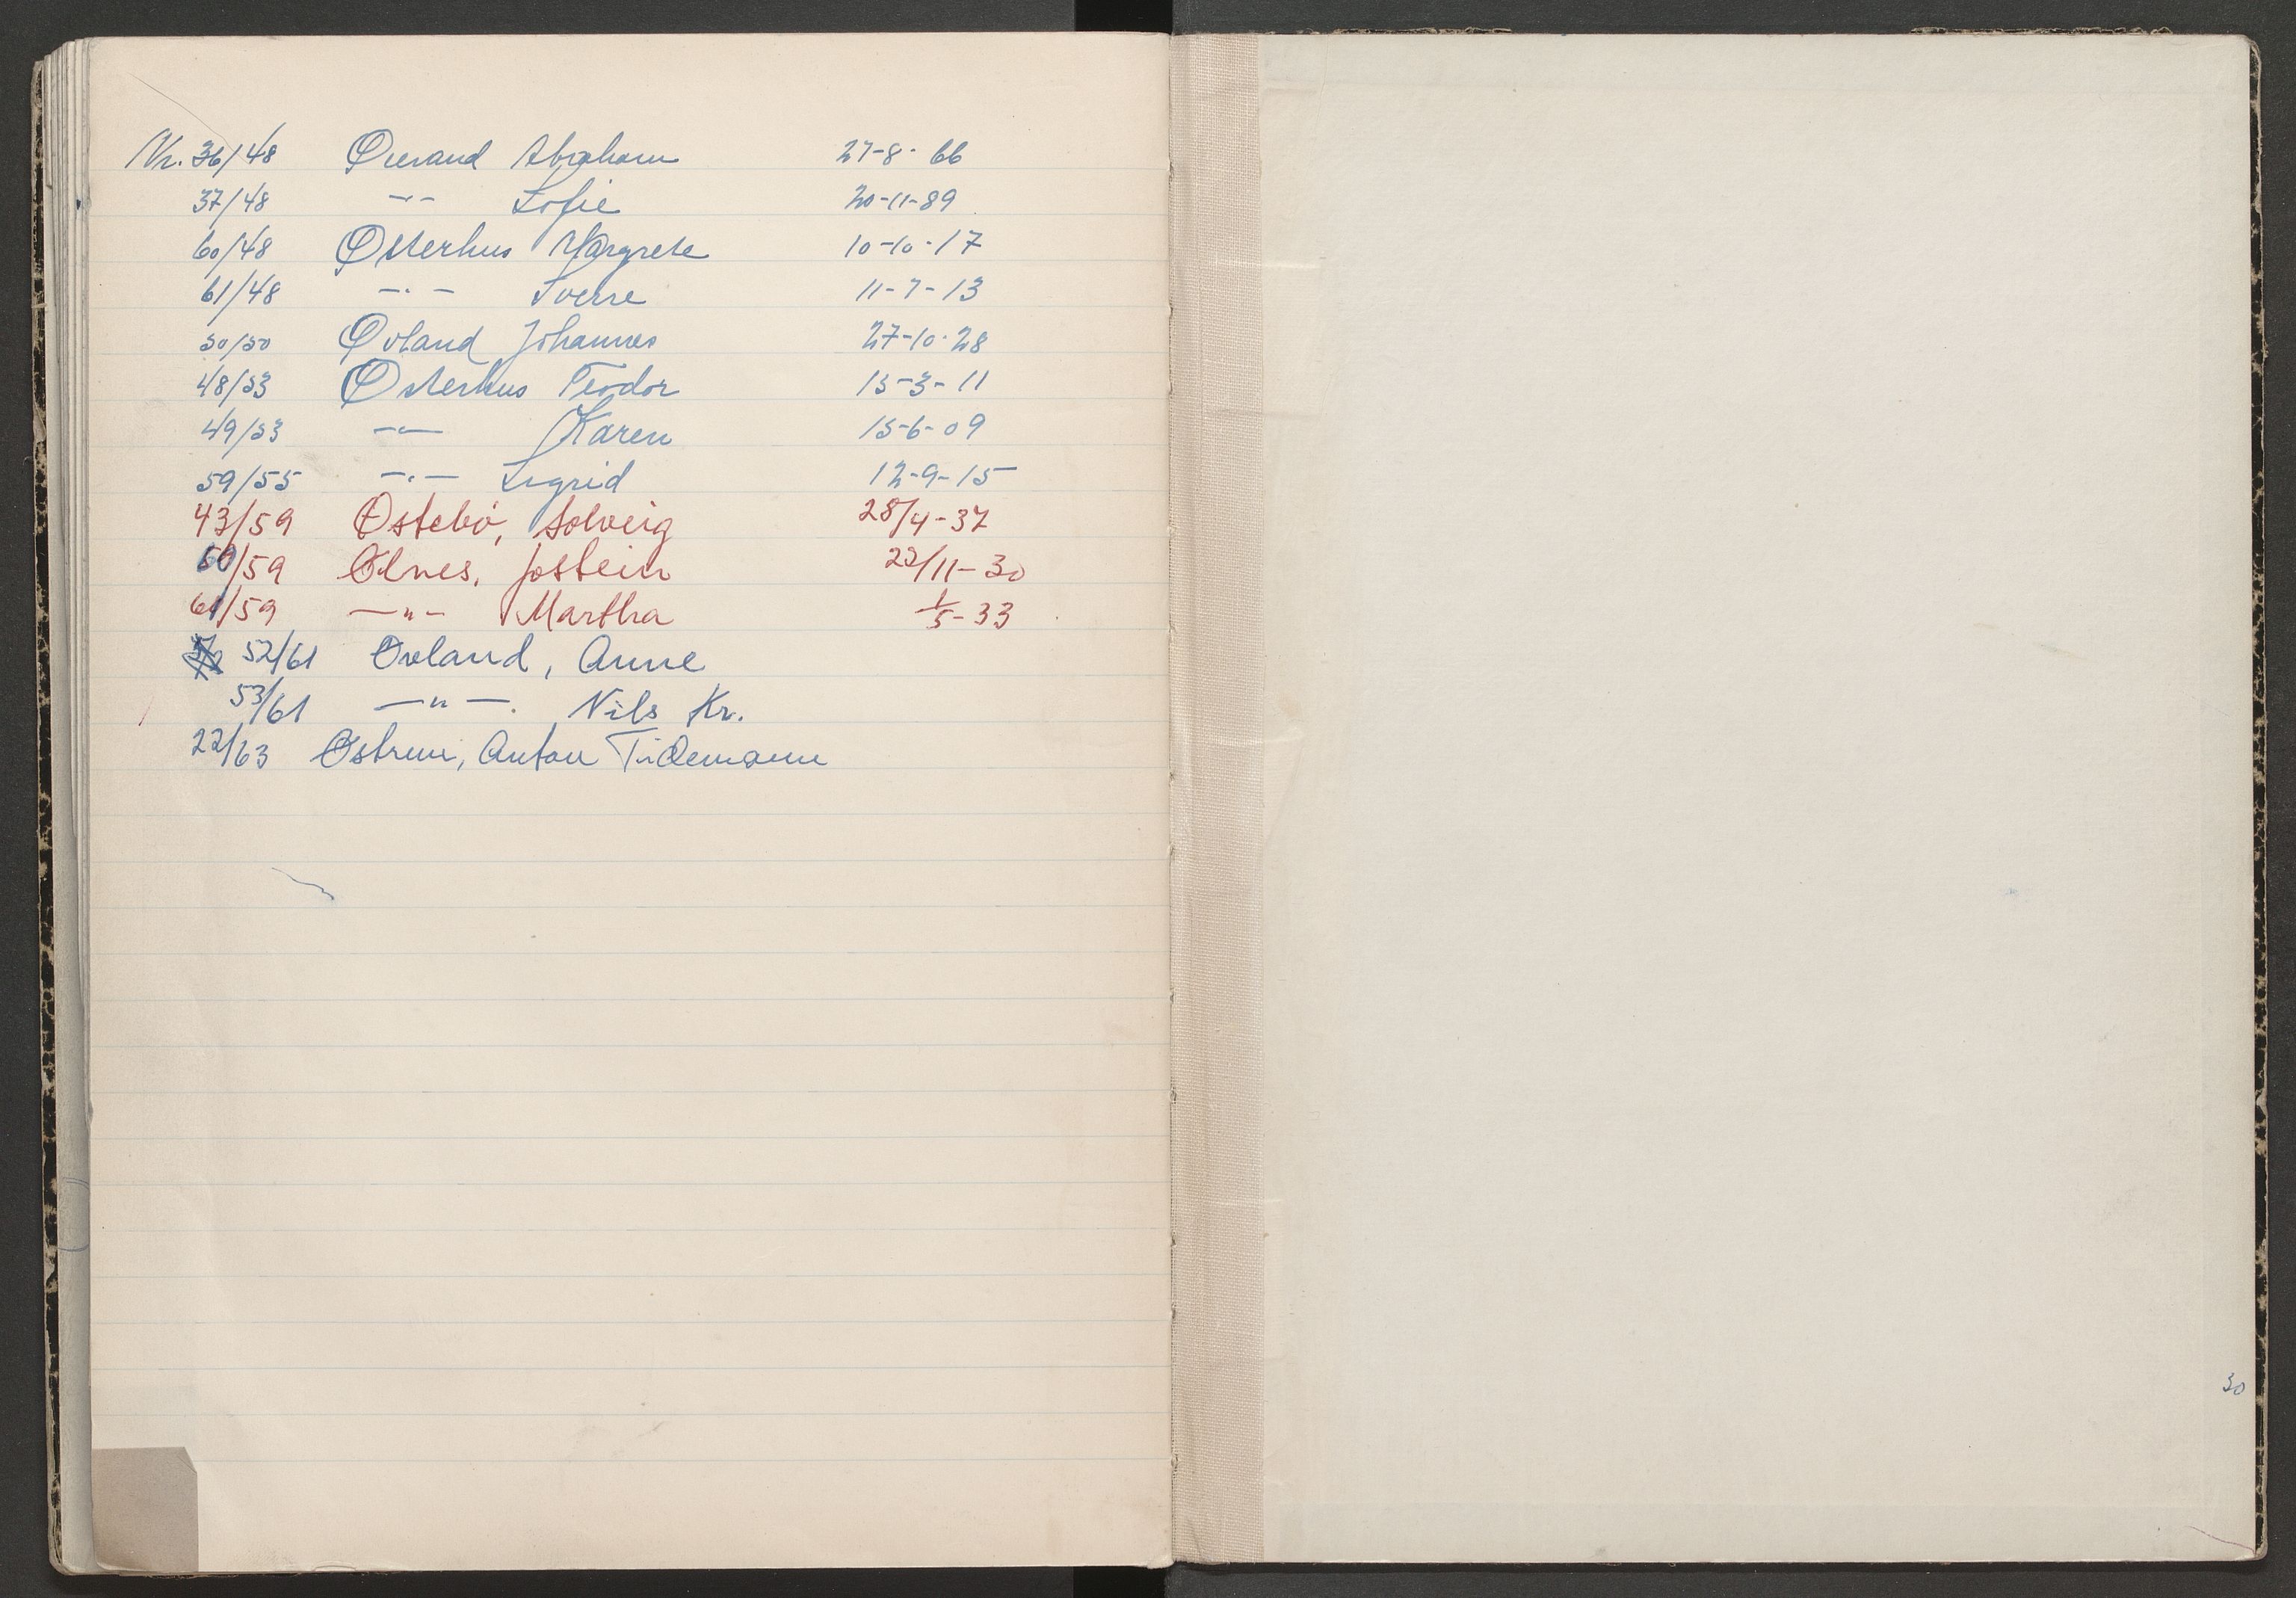 Nr. 36/48 Øverand Abraham 27-8-66
37/48 -"- Sofie 20-11-89
60/48 Østerhus Margrete 10-10-17
61/48 -"- Sverre 11-7-13
50/50 Øvland Johannes 27-10-28
48/53 Østerhus Teodor 15-3-11
49/53 -"- Karen 15-6-09
59/55 -"- Sigrid 12-9-15
43/59 Østebö, Solveig 28/4-37
60/59 Ølnes, Jostein 22/11-30
61/59 -"- Martha 1/5-33
52/61 Øvland, Anne
53/61 -"-. Nils Kr.
22/63 Østrem, Anton Tidemann
30